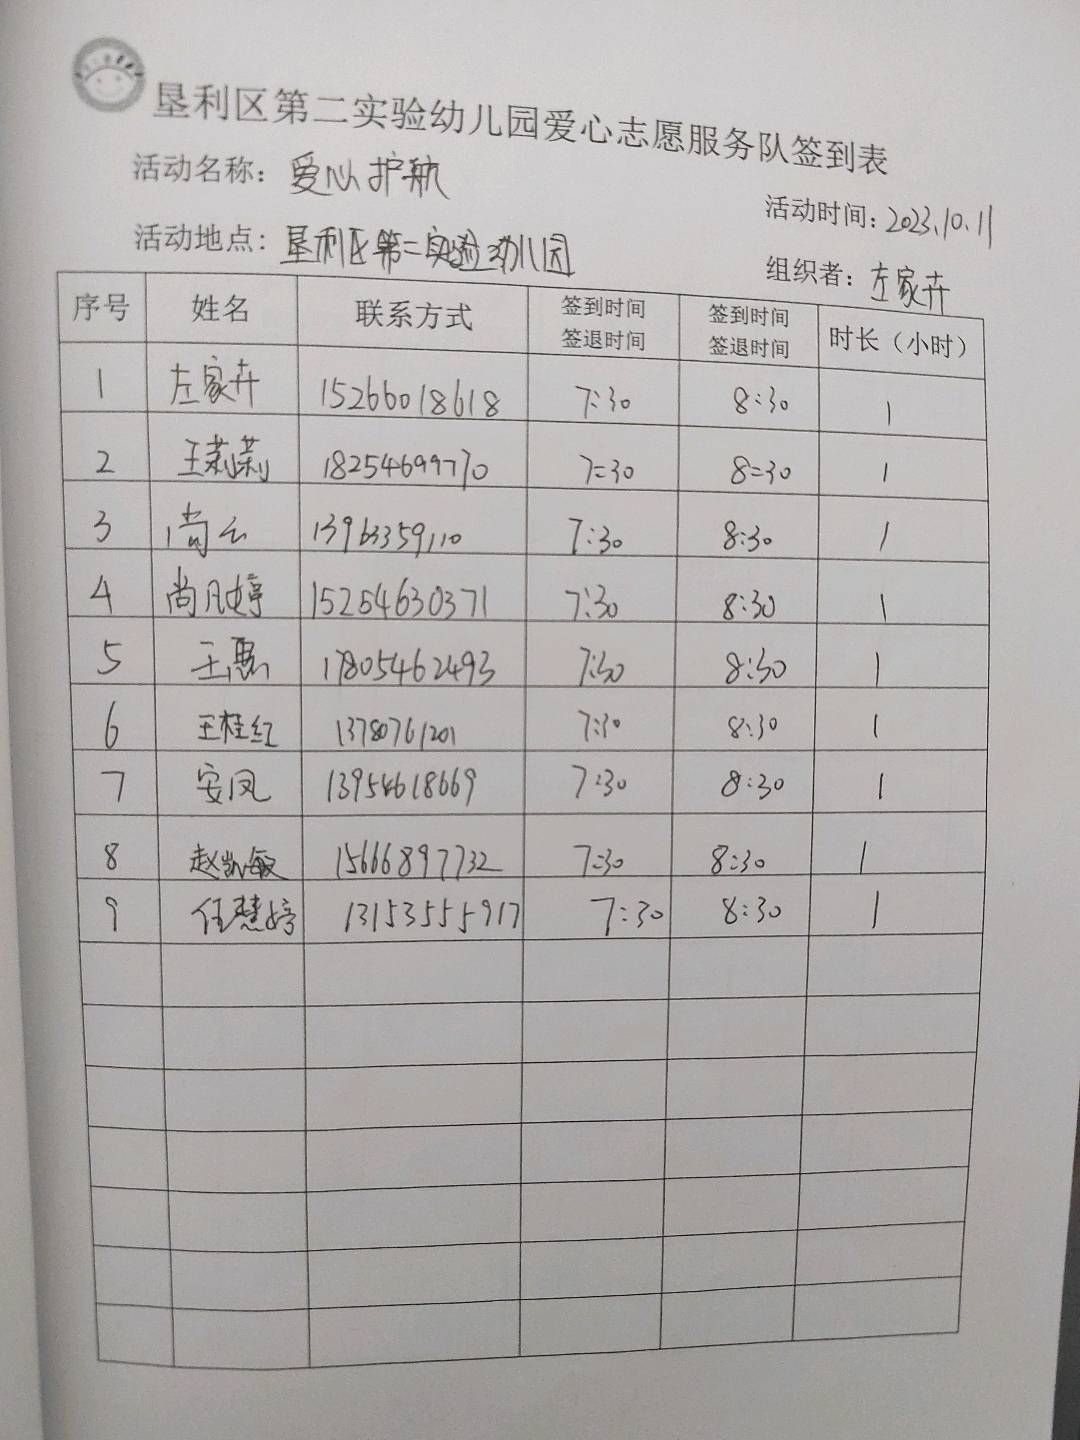 垦利区第二实验幼儿园爱心志愿服务队签到表
活动名称：爱心护航
活动时间：2023.10.11
活动地点：垦利区第二实验幼儿园
组织者：左家卉
序号 姓名 联系方式 签到时间 签退时间 签到时间 签退时间 时长（小时）
1 左家卉 15266018618 7:30 8:30 1
2 王莉莉 18254699770 7:30 8:30 1
3 尚云 13963359110 7:30 8:30 1
4 尚凡婷 15254630371 7:30 8:30 1
5 王 17805462493 7:30 8:30 1
6 王桂红 13780761201 7:30 8:30 1
7 安凤 13954618669 7:30 8:30 1
8 赵凯敏 15666897732 7:30 8:30 1
9 任慧婷 13153555917 7:30 8:30 1